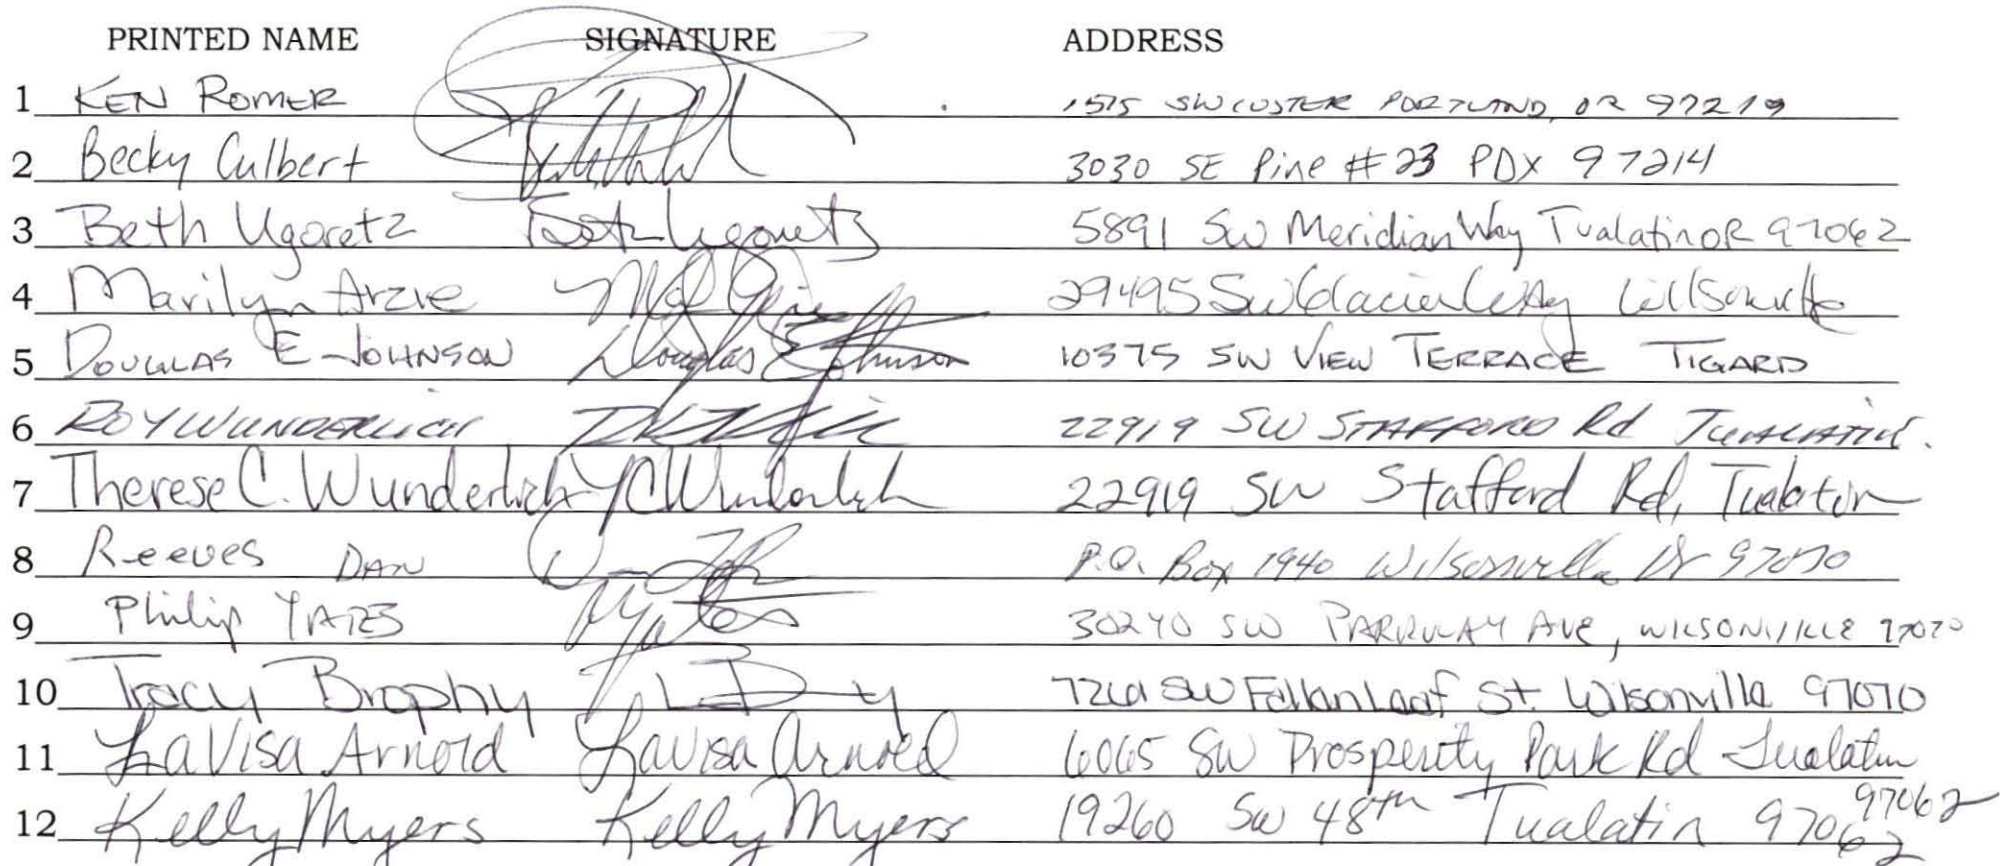 PRINTED NAME SIGNATURE ADDRESS
1 KEN ROMER 1515 SW CUSTER PORTLAND, OR 97219
2 Becky Culbert 3030 SE Pine #23 PDX 97214
3 Beth Ugoretz Beth Ugoretz 5891 SW Meridian Way Tualatin OR 97062
4 Marilyn Arzie 29495 SW Glacier Way Wilsonville
5 DOUGLAS E JOHNSON Douglas E Johnson 10375 SW VIEW TERRACE TIGARD
6 ROY WUNDERLICH 22919 SW STAFFORD Rd TUALATIN.
7 Therese C. Wunderlich TC Wunderlich 22919 SW Stafford Rd, Tualatin
8 Reeves DAN P.O. Box 1940 Wilsonville Or 97070
9 Philip YATES 30240 SW PARKWAY AVE, WILSONVILLE 97070
10 Tracy Brophy SW Fallen Leaf St. Wilsonville 97070
11 LaVisa Arnold LaVisa Arnold 6065 SW Prosperity Park Rd Tualatin
97062
12 Kelly Myers Kelly Myers 19260 SW 48th Tualatin 97062